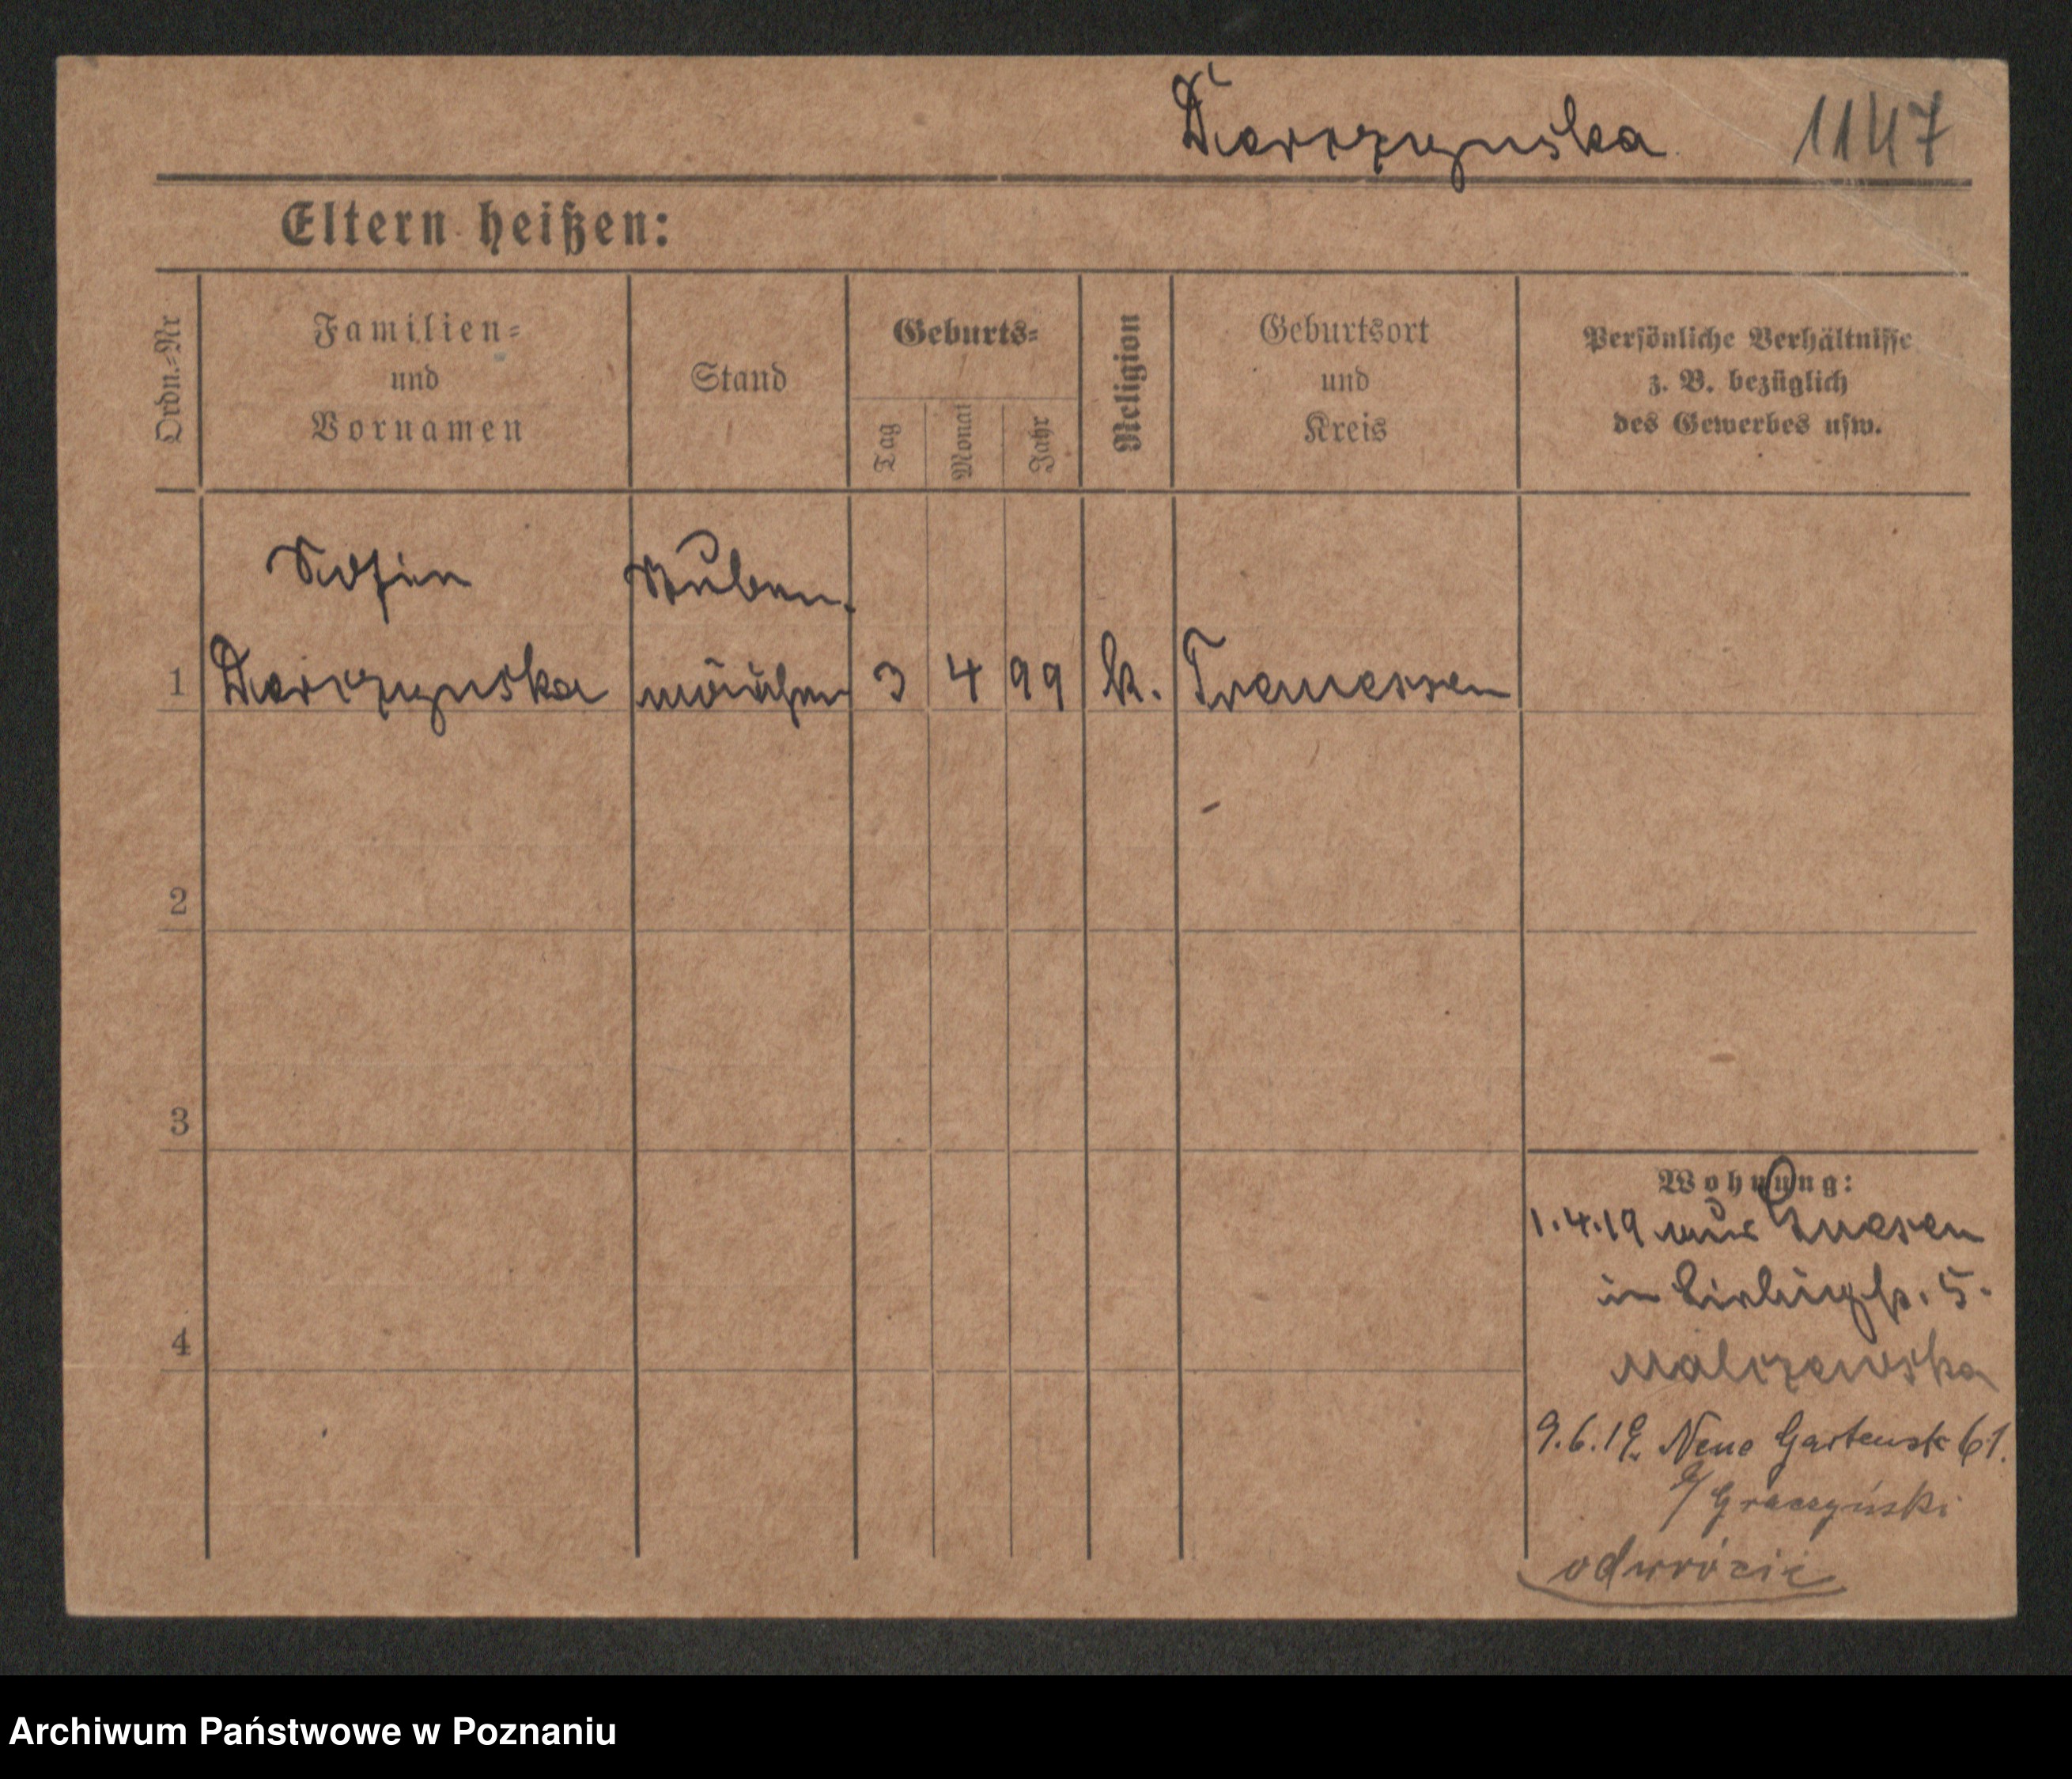 Darczynska 1147
Eltern heißen:
Ordn.=Nr
Familien=
und
Vornamen
Stand
Geburts=
Tag
Monat
Jahr
Religion
Geburtsort
und
Kreis
Persönliche Verhältnisse
z. B. bezüglich
des Gewerbes usw.
Stuben-
1 mädchen 3 4 99 k. Tremessen
2
3
4
Wohnung:
1.4.19 aus Gnesen
in 5.
Malczewska
9.6.19. Neue Gartenstr 61.
b/ Graczyński
odwrócić
Archiwum Państwowe w Poznaniu